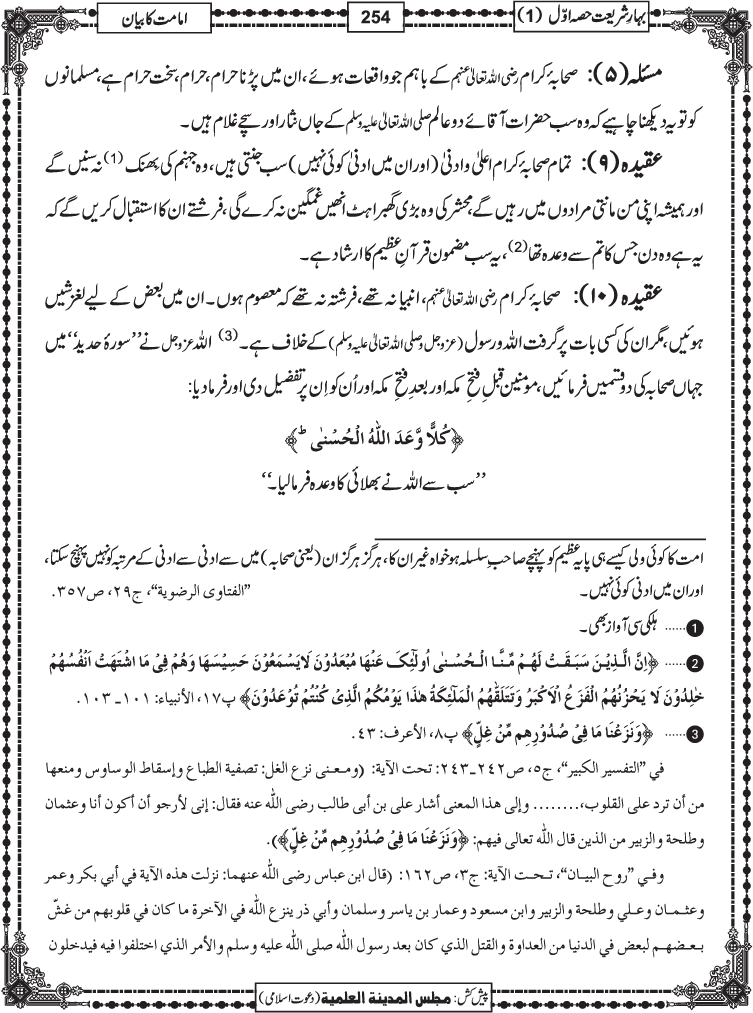 بہارِ شریعت حصہ اوّل (1)
254
امامت کا بیان
مسئلہ (۵): صحابۂ کرام رضی اللہ تعالیٰ عنہم کے باہم جو واقعات ہوئے، ان میں پڑنا حرام، حرام، سخت حرام ہے، مسلمانوں
کو تو یہ دیکھنا چاہیے کہ وہ سب حضرات آقائے دو عالم صلی اللہ تعالیٰ علیہ وسلم کے جاں نثار اور سچے غلام ہیں۔
عقیدہ (۹): تمام صحابۂ کرام اعلیٰ و ادنیٰ (اور ان میں ادنیٰ کوئی نہیں) سب جنتی ہیں، وہ جہنم کی بِھنک (1) نہ سنیں گے
اور ہمیشہ اپنی من مانتی مرادوں میں رہیں گے، محشر کی وہ بڑی گھبراہٹ انھیں غمگین نہ کرے گی، فرشتے ان کا استقبال کریں گے کہ
یہ ہے وہ دن جس کا تم سے وعدہ تھا (2)، یہ سب مضمون قرآنِ عظیم کا ارشاد ہے۔
عقیدہ (۱۰): صحابۂ کرام رضی اللہ تعالیٰ عنہم، انبیا نہ تھے، فرشتہ نہ تھے کہ معصوم ہوں۔ ان میں بعض کے لیے لغزشیں
ہوئیں، مگر ان کی کسی بات پر گرفت اللہ و رسول (عزوجل وصلی اللہ تعالیٰ علیہ وسلم) کے خلاف ہے۔ (3) اللہ عزوجل نے ’’سورۂ حدید‘‘ میں
جہاں صحابہ کی دو قسمیں فرمائیں، مومنین قبلِ فتحِ مکہ اور بعدِ فتحِ مکہ اور اُن کو اِن پر تفضیل دی اور فرما دیا:
﴿كُلًّا وَّعَدَ اللّٰهُ الْحُسْنٰىؕ﴾
’’سب سے اللہ نے بھلائی کا وعدہ فرما لیا۔‘‘
امت کا کوئی ولی کیسے ہی پایۂ عظیم کو پہنچے صاحبِ سلسلہ ہو خواہ غیر ان کا، ہرگز ہرگز ان (یعنی صحابہ) میں سے ادنی سے ادنی کے مرتبہ کو نہیں پہنچ سکتا،
اور ان میں ادنی کوئی نہیں۔ ”الفتاوی الرضوية“، ج۲۹، ص۳۵۷.
1 ...... ہلکی سی آواز بھی۔
2 ...... ﴿اِنَّ الَّذِيْنَ سَبَقَتْ لَهُمْ مِّنَّا الْحُسْنٰى اُولٰٓئِكَ عَنْهَا مُبْعَدُوْنَ لَا يَسْمَعُوْنَ حَسِيْسَهَا وَهُمْ فِيْ مَا اشْتَهَتْ اَنْفُسُهُمْ
خٰلِدُوْنَ لَا يَحْزُنُهُمُ الْفَزَعُ الْاَكْبَرُ وَتَتَلَقّٰهُمُ الْمَلٰٓئِكَةُ هٰذَا يَوْمُكُمُ الَّذِيْ كُنْتُمْ تُوْعَدُوْنَ﴾ پ۱۷، الأنبياء: ۱۰۱ـ۱۰۳.
3 ...... ﴿وَنَزَعْنَا مَا فِيْ صُدُوْرِهِم مِّنْ غِلٍّ﴾ پ۸، الأعرف: ۴۳.
في ”التفسير الكبير“، ج۵، ص۲۴۲ـ۲۴۳: تحت الآية: (ومعنى نزع الغل: تصفية الطباع وإسقاط الوساوس ومنعها
من أن ترد على القلوب،........ وإلى هذا المعنى أشار علي بن أبى طالب رضى الله عنه فقال: إنى لأرجو أن أكون أنا وعثمان
وطلحة والزبير من الذين قال اللّٰه تعالى فيهم: ﴿وَنَزَعْنَا مَا فِيْ صُدُوْرِهِم مِّنْ غِلٍّ﴾).
وفي ”روح البيان“، تحت الآية: ج۳، ص۱۶۲: (قال ابن عباس رضى اللّٰه عنهما: نزلت هذه الآية في أبي بكر وعمر
وعثمان وعلي وطلحة والزبير وابن مسعود وعمار بن ياسر وسلمان وأبي ذر ينزع اللّٰه في الآخرة ما كان في قلوبهم من غشّ
بعضهم لبعض في الدنيا من العداوة والقتل الذي كان بعد رسول اللّٰه صلى اللّٰه عليه وسلم والأمر الذي اختلفوا فيه فيدخلون
پیش کش: مجلس المدينة العلمية (دعوتِ اسلامی)